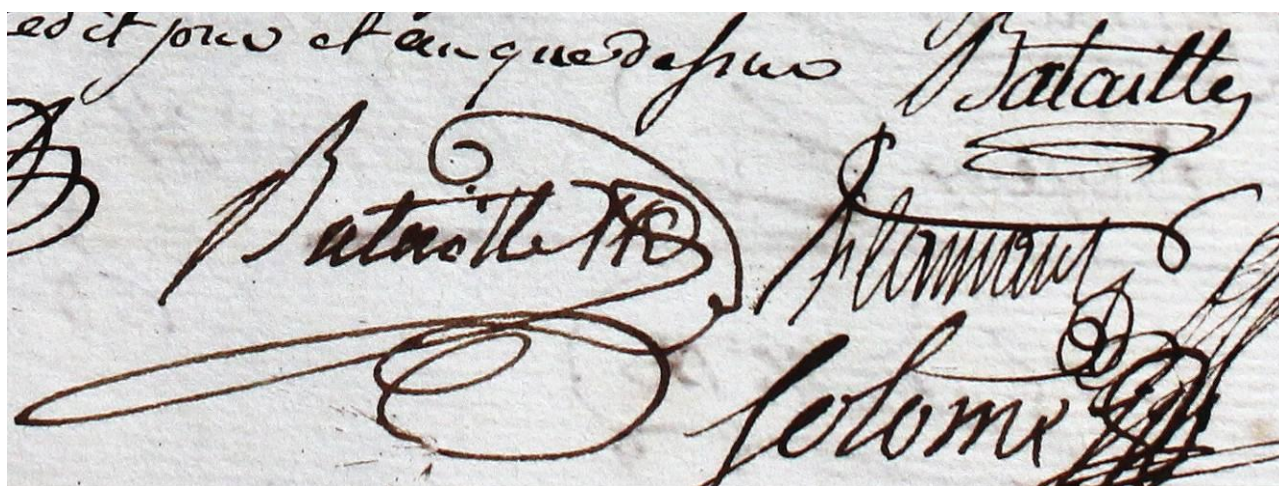 edit jour et an que dessus Bataille
Bataille
Solome